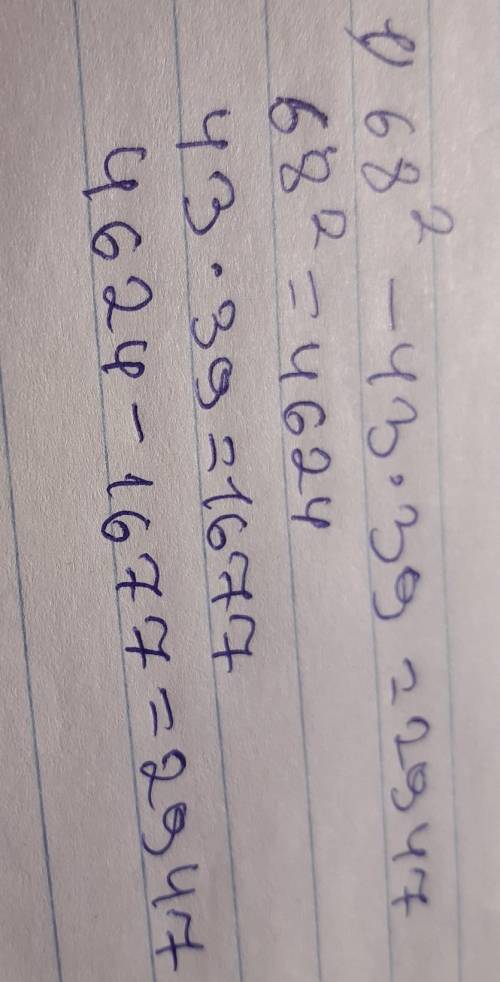 1) 68² - 43 · 39 = 2947
68² = 4624
43 · 39 = 1677
4624 - 1677 = 2947